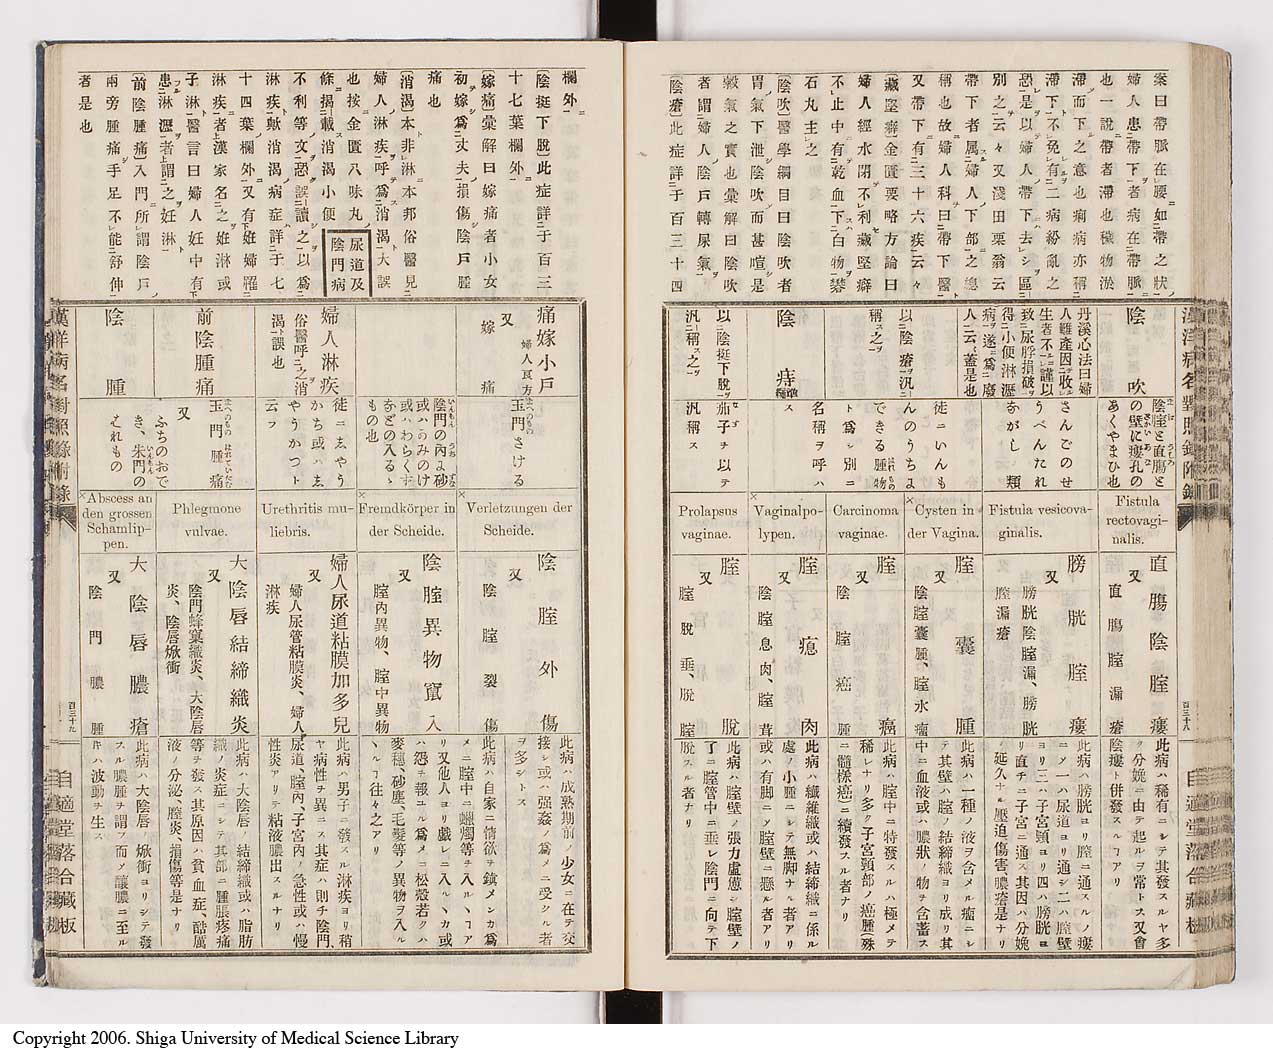 案曰帶脈在腰如帶之狀
婦人患帶下者病在帶脈
也一說帶者滯也穢物淤
滯而下之意也痢病亦稱
滯下不免有二病紛亂之
恐是以婦人帶下去レシ區
別之云々又淺田栗翁云
帶下者属婦人下部之總
稱也故婦人科曰帶下醫
又帶下有三十六疾云々
藏堅癖金匱要略方論曰
婦人經水閉不利藏堅癖
不止中有乾血下白物礬
石丸主之
〔陰吹〕醫學綱目曰陰吹者
胃氣下泄陰吹而甚喧是
穀氣之實也彙解曰陰吹
者謂婦人陰戸轉屎氣
〔陰瘡〕此症詳于百三十四
漢洋病名對照錄附錄
百三十八
自適堂落合藏板
陰吹
陰腟と直膓と
の壁に瘻孔の
あくやまひ也
Fistula
rectovagi-
nalis.
直膓陰腟瘻
又
直膓腟漏瘡
此病ハ稀有ニシテ其發スルヤ多
ク分娩ニ由テ起ルヲ常トス又會
陰瘻ト併發スルヿアリ
丹溪心法曰婦
人難產因收
生者不謹以
致尿脬損破
得小便淋瀝
病遂爲廢
人云蓋是也
さんごのせ
うべんたれ
ながし類
Fistula vesicova-
ginalis.
膀胱腟瘻
又
膀胱陰腟漏、膀胱
腟漏瘡
此病ハ膀胱ヨリ腟ニ通スルノ瘻
ニノ一ハ尿道ヨリ通シ二ハ腟壁
ヨリ三ハ子宮頸ヨリ四ハ膀胱ヨ
リ直チニ子宮ニ通ス其因ハ分娩
ノ延久ナル壓迫傷害膿瘡是ナリ
徒ニいんも
んのうちよ
Cysten in
der Vagina.
腟囊腫
又
陰腟囊腫、腟水瘤
此病ハ一種ノ液ヲ含メル瘤ニシ
テ其壁ハ腟ノ結締織ヨリ成リ其
中ニ血液或ハ膿狀ノ物ヲ含蓄ス
できる腫物
ト爲シ別ニ
Carcinoma
vaginae.
腟癌
又
陰腟癌腫
此病ハ腟中ニ特發スルハ極メテ
稀レナリ多ク子宮頸部ノ癌腫(殊
ニ髓樣癌)ニ續發スル者ナリ
以陰瘡汎
稱之
陰痔
名稱ヲ呼ハ
ス
Vaginalpo-
lypen.
腟瘜肉
又
陰腟息肉、腟茸
此病ハ纖維織或ハ結締織ニ係ル
處ノ小腫ニシテ無脚ナル者アリ
或ハ有脚ニノ腟壁ニ懸ル者アリ
以陰挺下脫
汎稱之
茄子ヲ以テ
汎稱ス
Prolapsus
vaginae.
腟脫
又
腟脫垂、脫腟
此病ハ腟壁ノ張力虛憊シ腟壁ノ
了ニ腟管中ニ垂レ陰門ニ向テ下
脫スル者ナリ
欄外
〔陰挺下脫〕此症詳于百三
十七葉欄外
〔嫁痛〕彙解曰嫁痛者小女
初嫁爲丈夫損傷陰戸腫
痛也
〔消渴〕本非淋本邦俗醫見
婦人淋疾呼爲消渴大誤
也按金匱八味丸
條揭載消渴小便
不利等文恐誤讀之以爲
淋疾歟消渴病症詳于七
十四葉欄外又有下姙婦罹
淋疾者漢家名之姙淋或
子淋醫言曰婦人妊中有
患淋瀝者謂之妊淋
〔前陰腫痛〕入門所謂陰戸
兩旁腫痛手足不能舒伸
者是也
尿道及
陰門病
痛嫁小戸
又 婦人良方
嫁痛
玉門さける
Verletzungen der
Scheide.
陰腟外傷
又
陰腟裂傷
此病ハ成熟期前ノ少女ニ在テ交
接シ或ハ强姦ノ爲メニ受クル者
ヲ多シトス
陰門の內よ砂
或ハのみのけ
或ハわらくず
などの入る
もの也
Fremdkörper in
der Scheide.
陰腟異物竄入
又
腟內異物、腟中異物
此病ハ自家ニ情欲ヲ鎮メンカ爲
メニ腟中ニ蠟燭等ヲ入ルヽヿア
リ又他人ヨリ戯レニ入ルヽカ或
ハ怨ヲ報ユル爲メニ松殼若クハ
麥穗、砂塵、毛髮等ノ異物ヲ入ル
ヽヿ往々之アリ
婦人淋疾
俗醫呼之消
渴誤也
徒ニ志やう
かち或ハ志
やうかつト
云フ
Urethritis mu-
liebris.
婦人尿道粘膜加多兒
又
婦人尿管粘膜炎、婦人
淋疾
此病ハ男子ニ發スル淋疾ヨリ稍
ヤ病性ヲ異ニス其症ハ則チ陰門、
尿道、腟內、子宮內ノ急性或ハ慢
性炎アリテ粘液膿出スルナリ
前陰腫痛
玉門腫痛
又
ふちのおで
き、朱門の
Phlegmone
vulvae.
大陰唇結締織炎
又
陰門蜂窠織炎、大陰唇
炎、陰唇焮衝
此病ハ大陰唇ノ結締織或ハ脂肪
織ノ炎症ニシテ其部ニ腫脹疼痛
等ヲ發ス其原因ハ貧血症、酷厲
液ノ分泌、腟炎、損傷等是ナリ
陰腫
これもの
Abscess an
den grossen
Schamlip-
pen.
大陰唇膿瘡
又
陰門膿腫
此病ハ大陰唇ノ焮衝ヨリシテ發
スル膿腫ヲ謂フ而ノ釀膿ニ至ル
片ハ波動ヲ生ス
漢洋病名對照錄附錄
百三十九
自適堂落合藏板
Copyright 2006. Shiga University of Medical Science Library